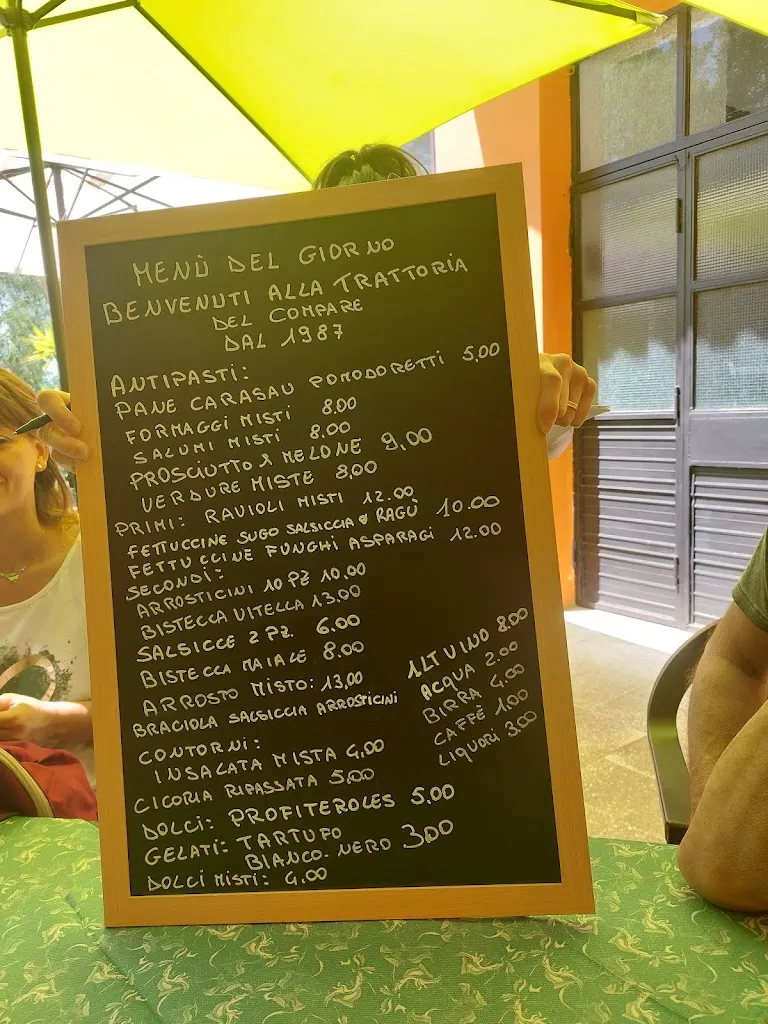 MENÙ DEL GIORNO
BENVENUTI ALLA TRATTORIA
DEL COMPARE
DAL 1987
ANTIPASTI:
PANE CARASAU POMODORETTI 5,00
FORMAGGI MISTI 8.00
SALUMI MISTI 8.00
PROSCIUTTO & MELONE 9,00
VERDURE MISTE 8,00
PRIMI: RAVIOLI MISTI 12.00
FETTUCCINE SUGO SALSICCIA & RAGÙ 10.00
FETTUCCINE FUNGHI ASPARAGI 12.00
SECONDI:
ARROSTICINI 10 PZ 10,00
BISTECCA VITELLA 13.00
SALSICCE 2 PZ. 6.00
BISTECCA MAIALE 8.00
ARROSTO MISTO: 13,00
BRACIOLA SALSICCIA ARROSTICINI
CONTORNI:
INSALATA MISTA 4,00
CICORIA RIPASSATA 5,00
DOLCI: PROFITEROLES 5,00
GELATI: TARTUFO
BIANCO-NERO 3,00
DOLCI MISTI: 4.00
1LT VINO 8.00
ACQUA 2.00
BIRRA 4,00
CAFFÈ 1,00
LIQUORI 3,00